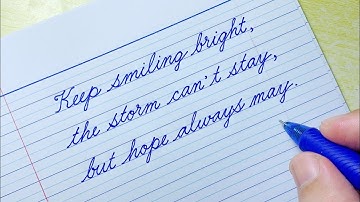 Keep smiling bright,
the storm can't stay,
but hope always may.